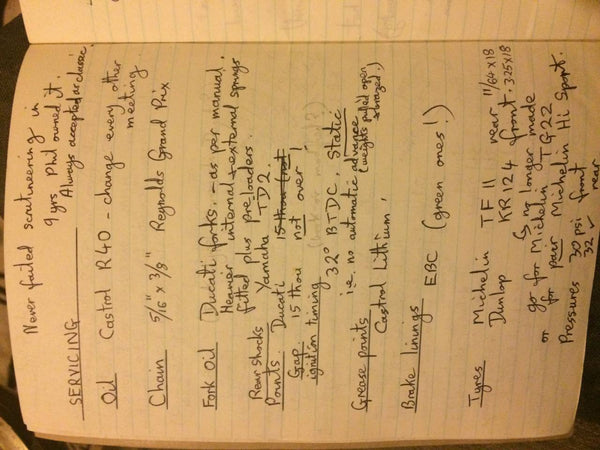 Never failed scrutineering in
9 yrs Phil owned it.
Always accepted as classic.
SERVICING
Oil Castrol R40 - change every other
meeting
Chain 5/16" x 3/8" Reynolds Grand Prix
Fork Oil Ducati forks. - as per manual.
Heavier internal + external springs
fitted plus pre-loaders.
Rear shocks Yamaha TD2
Points Ducati 15 thou (not
Gap 15 thou not over!
ignition timing 32° BTDC, static
i.e. no automatic advance
(weights pulled open
+ brazed.)
Grease points
Castrol Lithium,
Brake linings EBC (green ones!)
Tyres Michelin TF11 rear 11/64 x 18
Dunlop KR124 front. 3.25 x 18
no longer made
go for Michelin TG22
or for pair Michelin Hi Sport.
Pressures 30 psi front
32 " rear